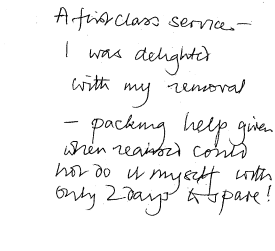 A first class service –
I was delighted
with my removal
– packing help given
when required could
not do it myself with
only 2 days to spare!